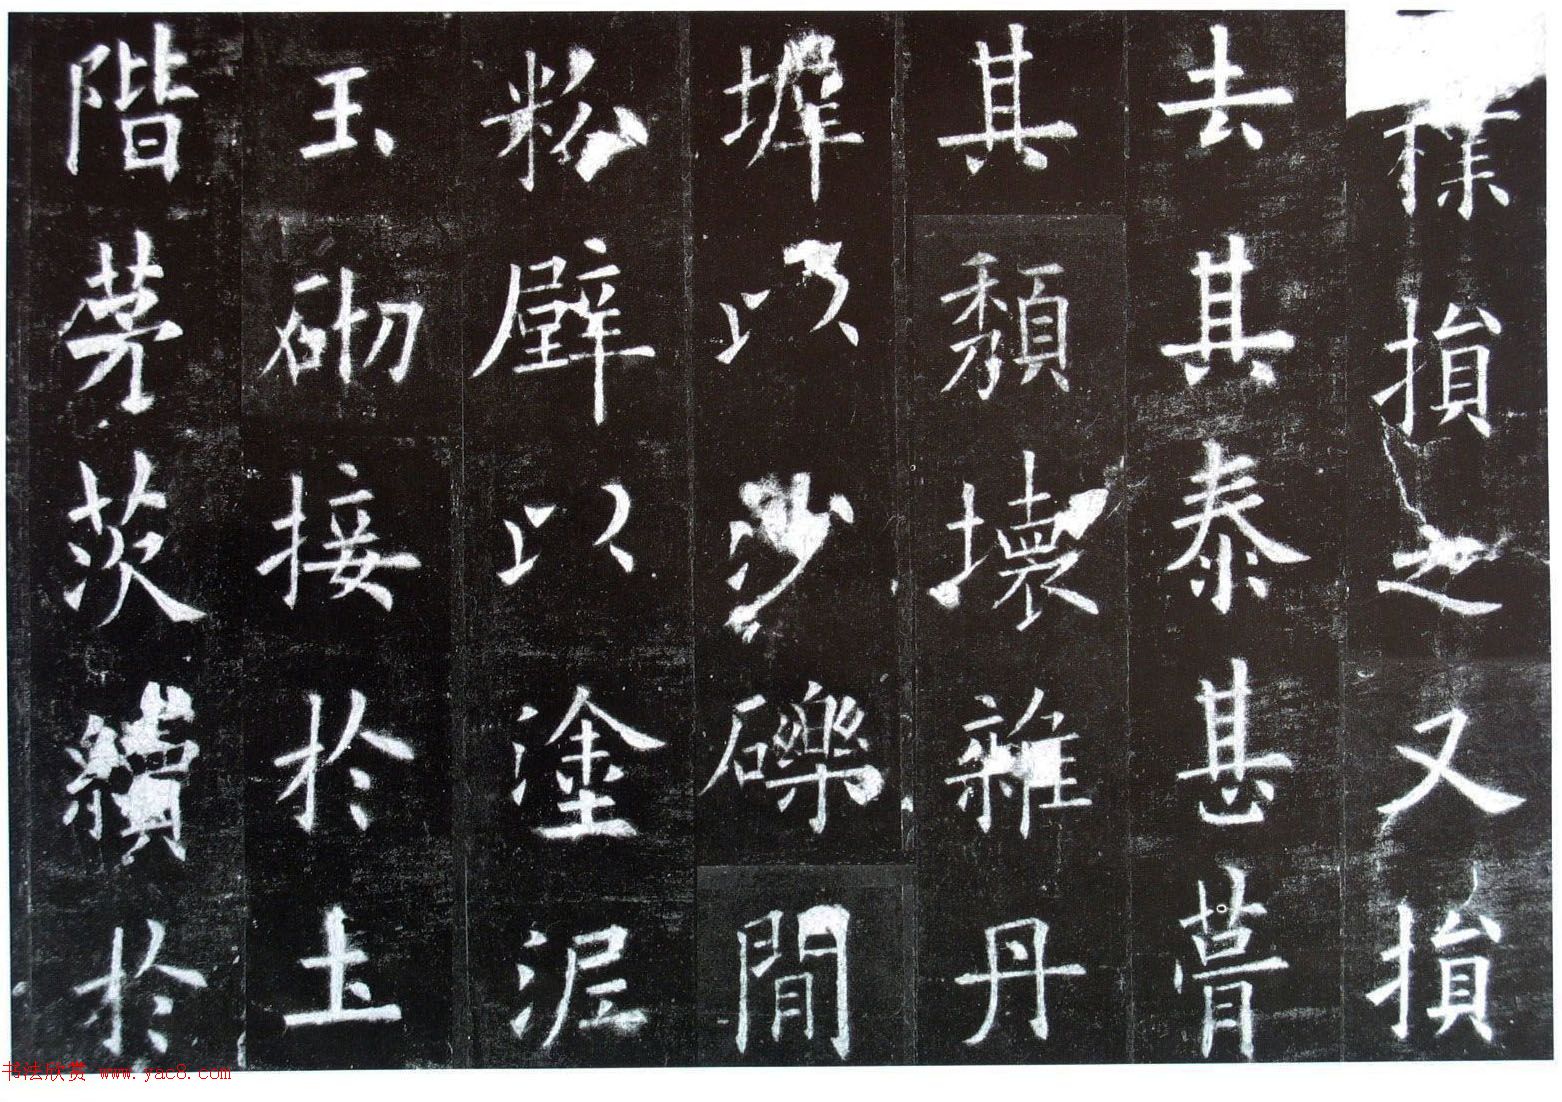 樸損之又損
去其泰甚葺
其頹壞雜丹
墀以沙礫間
粉壁以塗泥
玉砌接於土
階茅茨續於
书法欣赏 www.yac8.com